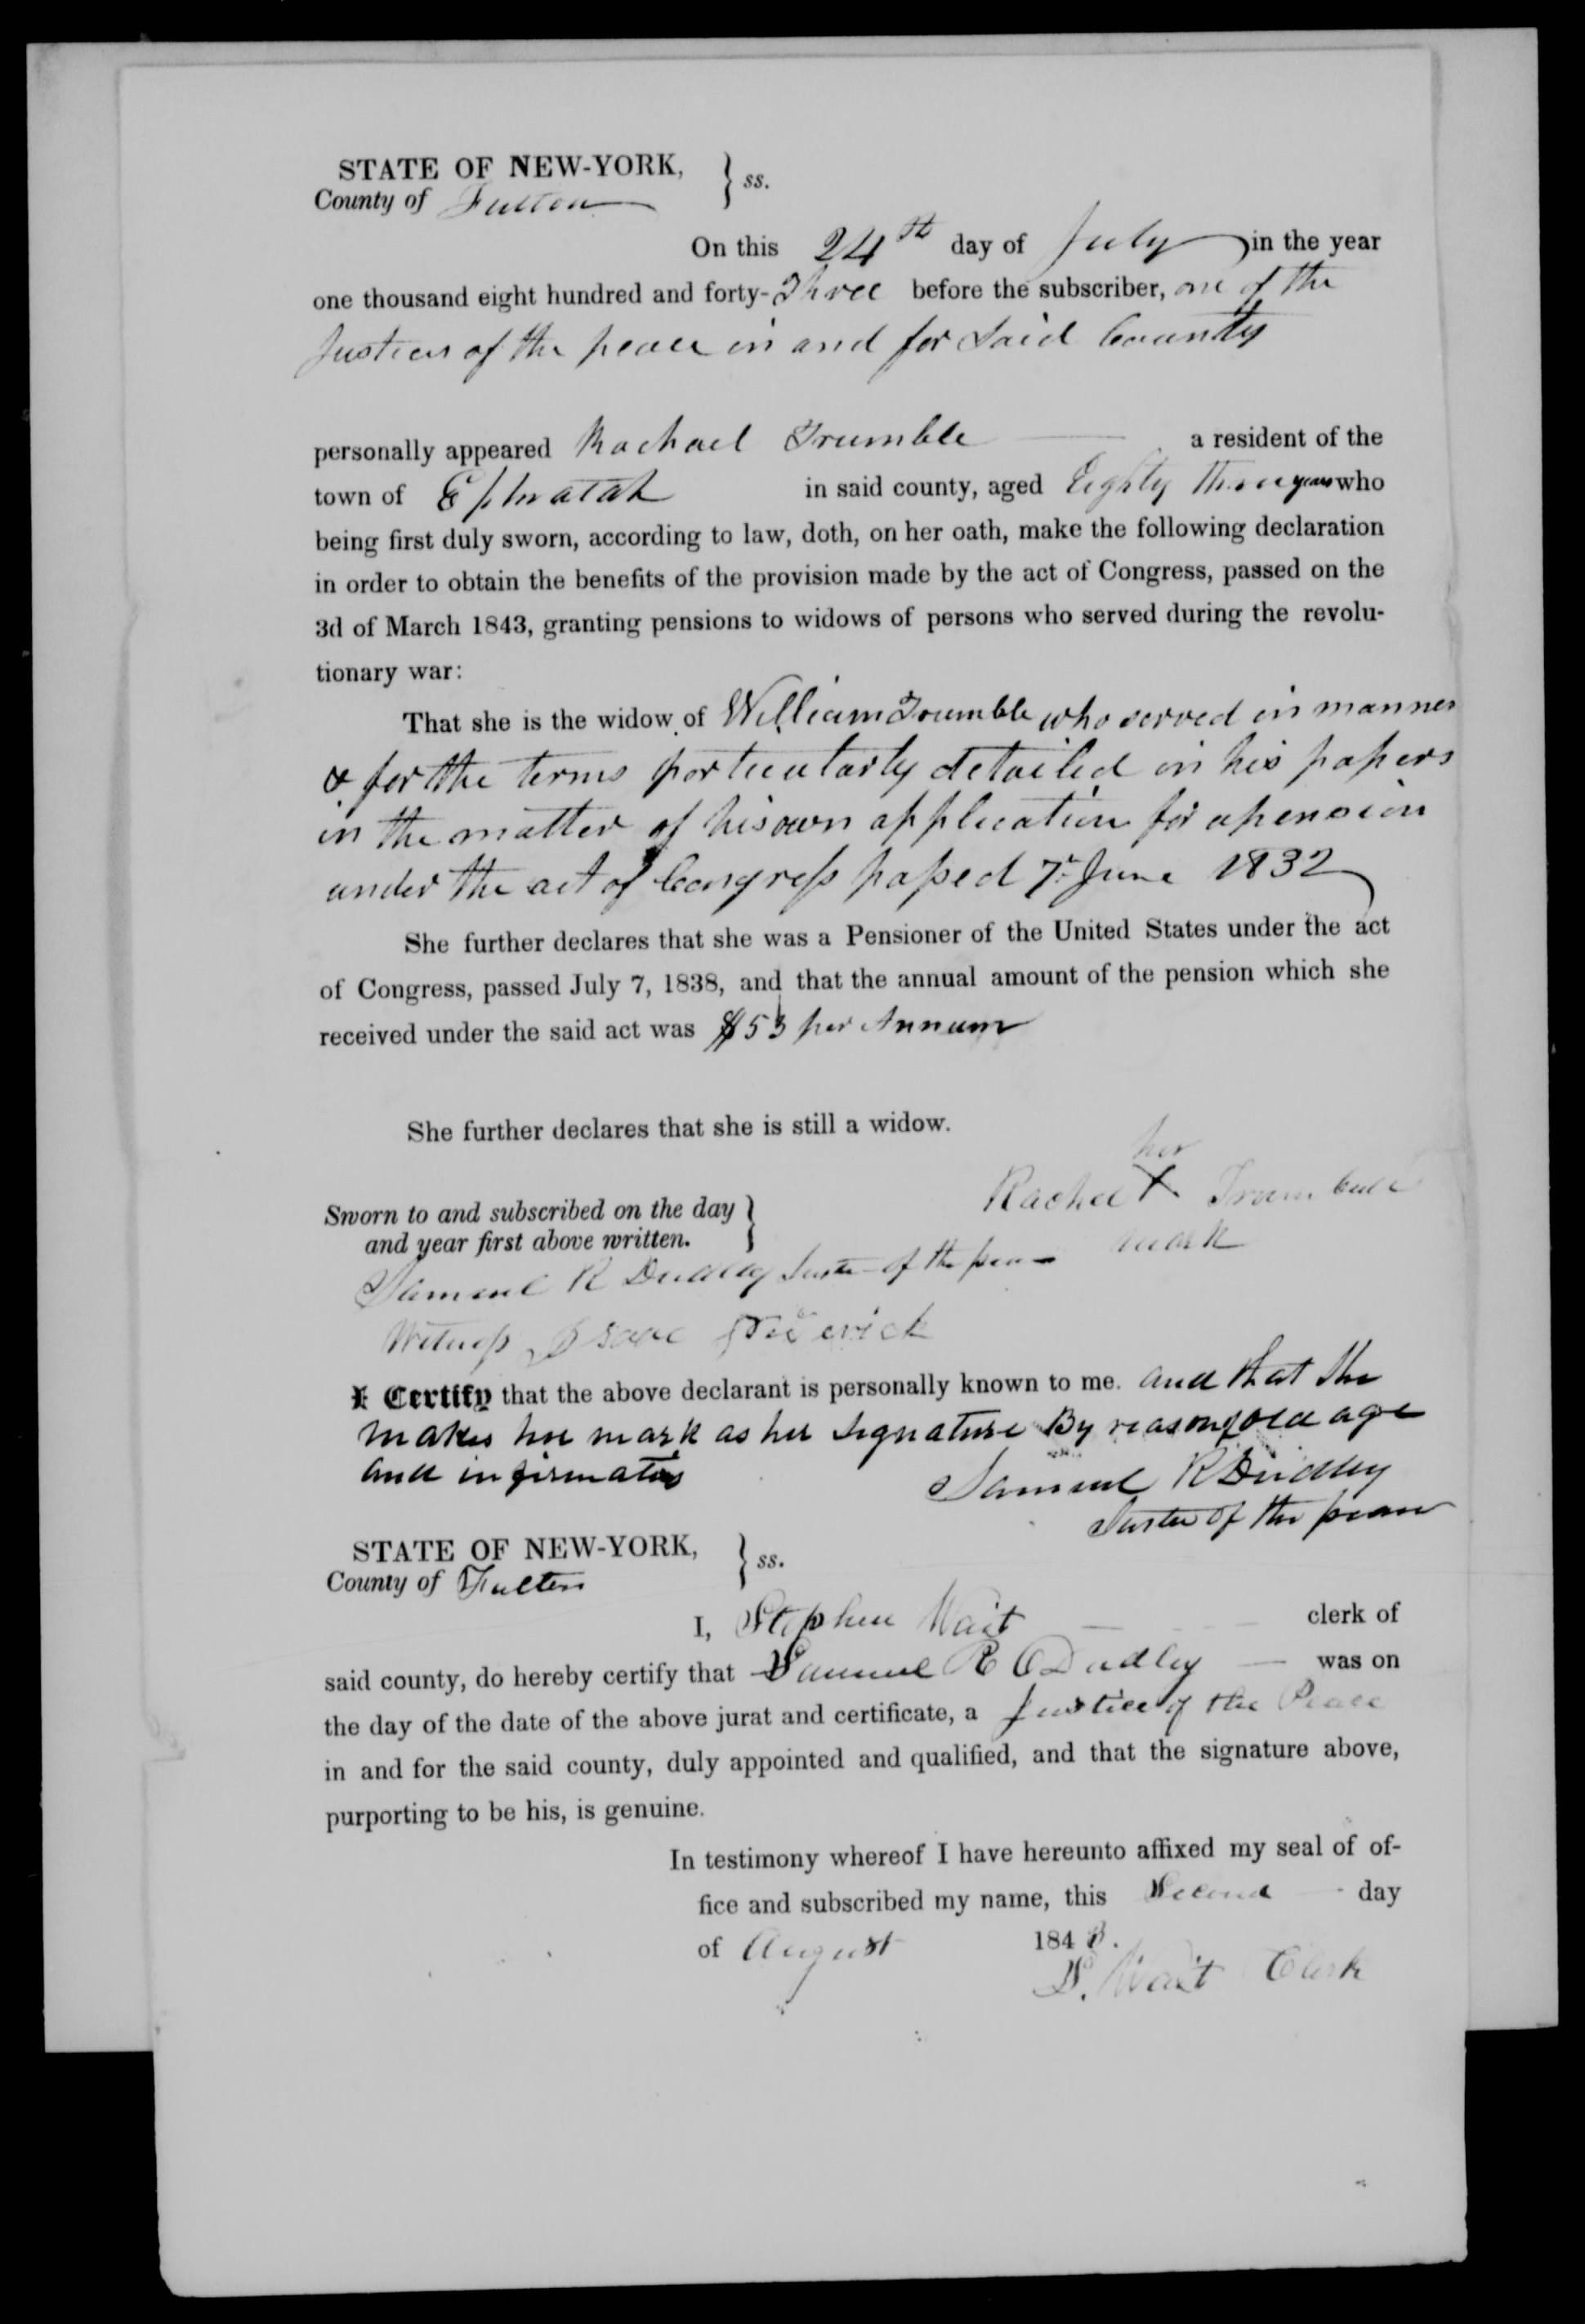 STATE OF NEW-YORK, } ss.
County of Fulton
On this 24th day of July in the year
one thousand eight hundred and forty-Three before the subscriber, one of the
Justices of the peace in and for said County
personally appeared Rachael Trumble a resident of the
town of Ephratah in said county, aged Eighty three years who
being first duly sworn, according to law, doth, on her oath, make the following declaration
in order to obtain the benefits of the provision made by the act of Congress, passed on the
3d of March 1843, granting pensions to widows of persons who served during the revolu-
tionary war:
That she is the widow of William Trumble who served in manner
& for the terms particularly detailed in his papers
in the matter of his own application for a pension
under the act of Congress passed 7th June 1832
She further declares that she was a Pensioner of the United States under the act
of Congress, passed July 7, 1838, and that the annual amount of the pension which she
received under the said act was $53 per Annum
She further declares that she is still a widow.
her
Rachel X Trumbull
mark
Sworn to and subscribed on the day }
and year first above written.
Samuel R Dudley Justice of the peace
Witness Isaac
I Certify that the above declarant is personally known to me. and that she
makes her mark as her signature By reason of old age
and infirmaties
Samuel R Dudley
Justice of the peace
STATE OF NEW-YORK, } ss.
County of Fulton
I, Stephen Wait clerk of
said county, do hereby certify that Samuel R Dudley was on
the day of the date of the above jurat and certificate, a Justice of the Peace
in and for the said county, duly appointed and qualified, and that the signature above,
purporting to be his, is genuine.
In testimony whereof I have hereunto affixed my seal of of-
fice and subscribed my name, this Second day
of August 1843.
S. Wait Clerk